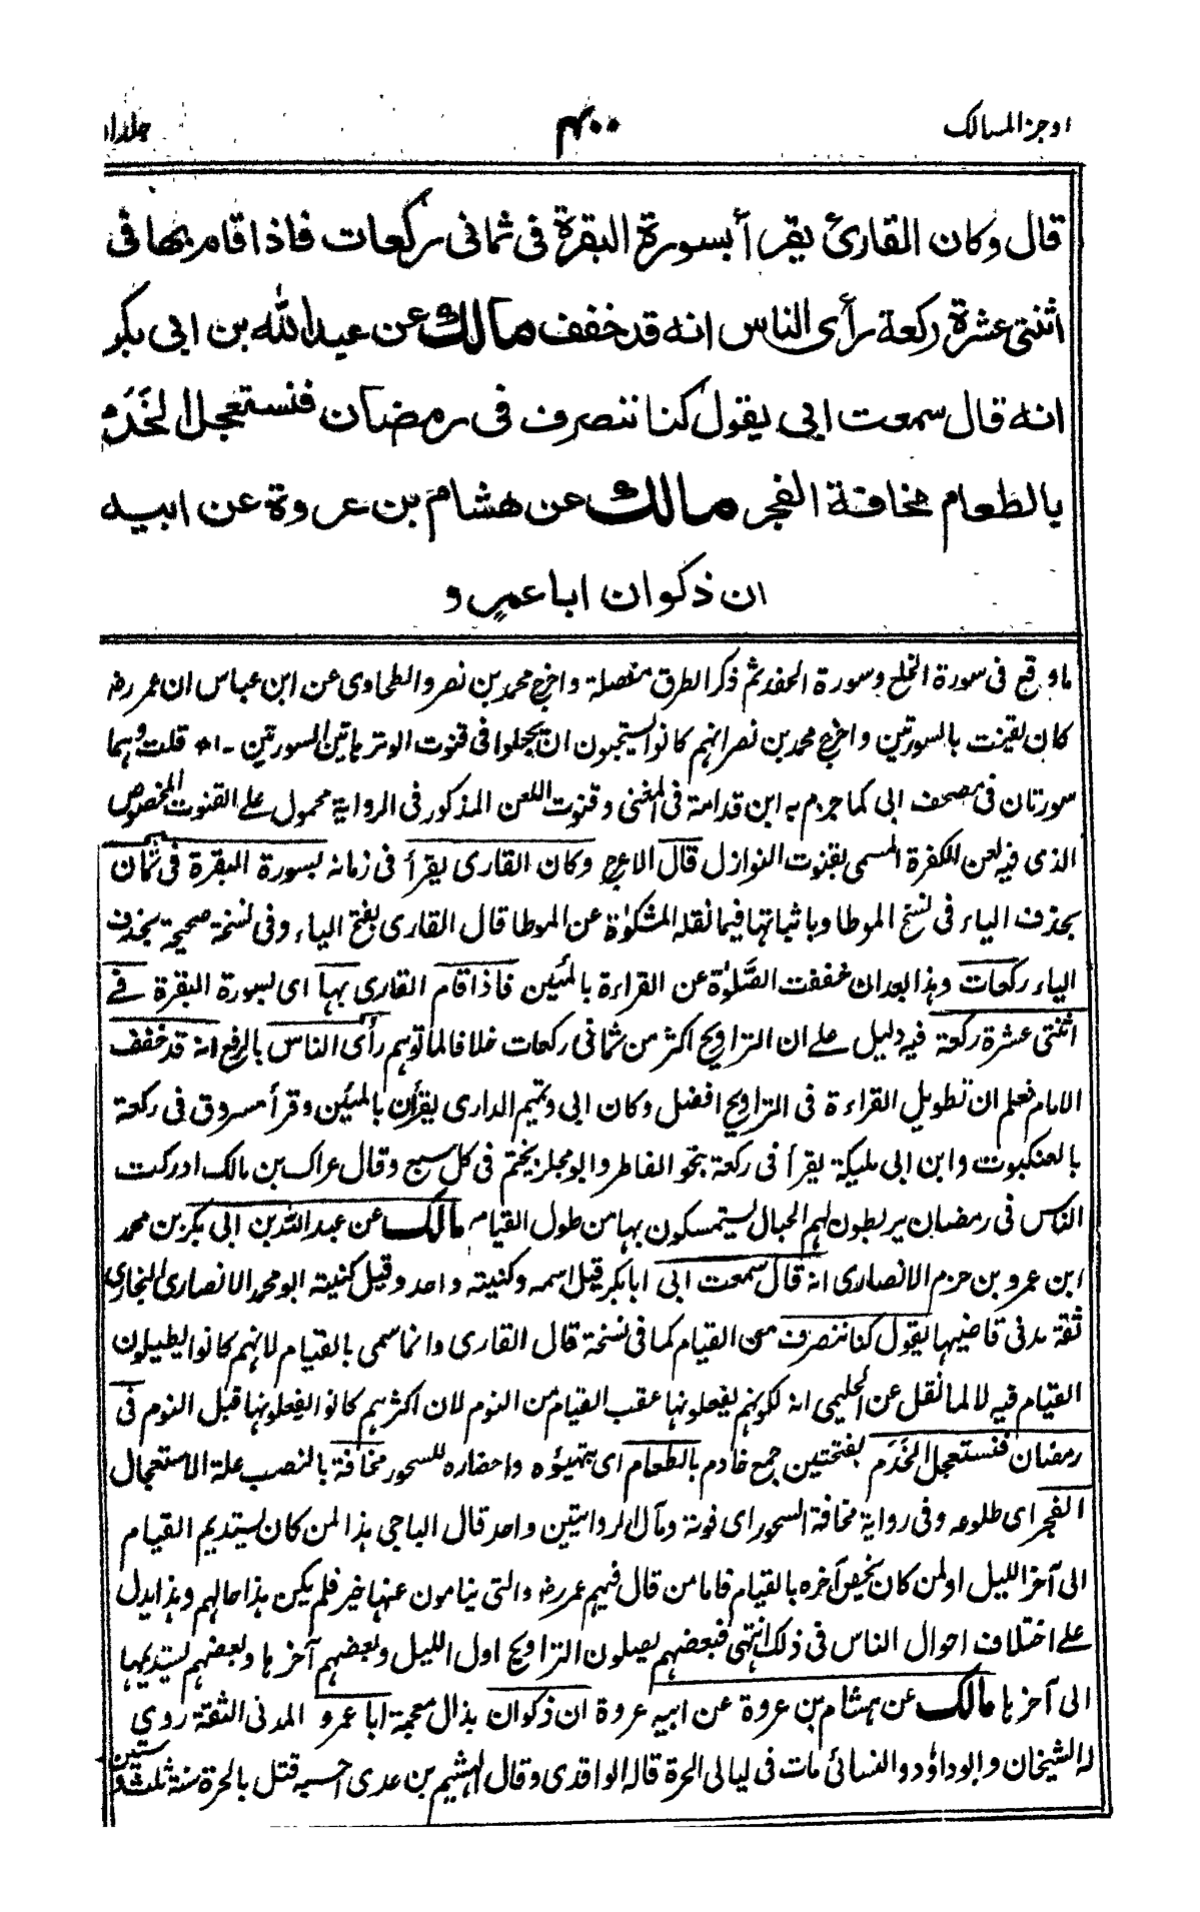 اوجز المسالك
٤٠٠
جلد ١
قال وكان القارئ يقرأ بسورة البقرة فى ثمانى ركعات فاذا قام بها فى
اثنتى عشرة ركعة رأى الناس انه قد خفف مالك عن عبد الله بن ابى بكر
انه قال سمعت ابى يقول كنا ننصرف فى رمضان فنستعجل الخَدَمَ
بالطعام مخافة الفجر مالك عن هشام بن عروة عن ابيه
ان ذكوان ابا عمرٍو
ما وقع فى سورة الخلع وسورة الحفد ثم ذكر الطرق مفصلة واخرج محمد بن نصر والطحاوى عن ابن عباس ان عمر رضـ
كان يقنت بالسورتين واخرج محمد بن نصر انهم كانوا يستحبون ان يجعلوا فى قنوت الوتر هاتين السورتين - اھ قلت وهما
سورتان فى مصحف ابى كما جزم به ابن قدامة فى المغنى وقنوت اللعن المذكور فى الرواية محمول على القنوت المخصوص
الذى فيه لعن الكفرة المسمى بقنوت النوازل قال الاعرج وكان القارى يقرأ فى زمانه بسورة البقرة فى ثمان
بحذف الياء فى نسخ الموطا وباثباتها فيما نقله المشكوٰة عن الموطا قال القارى بفتح الياء وفى نسخة صحيحة بحذف
الياء ركعات وهذا بعد ان خففت الصَّلوٰة عن القراءة بالمئين فاذا قام القارى بها اى بسورة البقرة فى
اثنتى عشرة ركعة فيه دليل على ان التراويح اكثر من ثمانى ركعات خلافا لما توهم رأى الناس بالرفع انه قد خفف
الامام فعلم ان تطويل القراءة فى التراويح افضل وكان ابى وتميم الدارى يقرأن بالمئين وقرأ مسروق فى ركعة
بالعنكبوت وابن ابى مليكة يقرأ فى ركعة بنحو الفاطر وابو مجلز يختم فى كل سبع وقال عراك بن مالك ادركت
الناس فى رمضان يربطون لهم الحبال يستمسكون بها من طول القيام مالك عن عبد الله بن ابى بكر بن محمد
ابن عمرو بن حزم الانصارى انه قال سمعت ابى ابا بكر قيل اسمه وكنيته واحد وقيل كنيته ابو محمد الانصارى النجارى
ثقة مدنى قاضيها يقول كنا ننصرف من القيام كما فى نسخة قال القارى وانما سمى بالقيام لانهم كانوا يطيلون
القيام فيه لا لما نقل عن الحليمى انه لكونهم يفعلونها عقب القيام من النوم لان اكثرهم كانوا يفعلونها قبل النوم فى
رمضان فنستعجل الخَدَم بفتحتين جمع خادم بالطعام اى بتهيئوه واحضاره للسحور مخافة بالنصب علة الاستعجال
الفجر اى طلوعه وفى رواية مخافة السحور اى فوته ومآل الروايتين واحد قال الباجى هذا لمن كان يستديم القيام
الى آخر الليل او لمن كان يخص آخره بالقيام فاما من قال فيهم عمر رضـ والتى ينامون عنها خير فلم يكن هذا حالهم وهذا يدل
على اختلاف احوال الناس فى ذلك انتهى فبعضهم يصلون التراويح اول الليل وبعضهم آخرها وبعضهم يستديمها
الى آخرها مالك عن هشام بن عروة عن ابيه عروة ان ذكوان بذال معجمة ابا عمرو المدنى الثقة روى
له الشيخان وابو داؤد والنسائى مات فى ليالى الحرة قاله الواقدى وقال الهيثم بن عدى احسبه قتل بالحرة سنة ثلث وستين